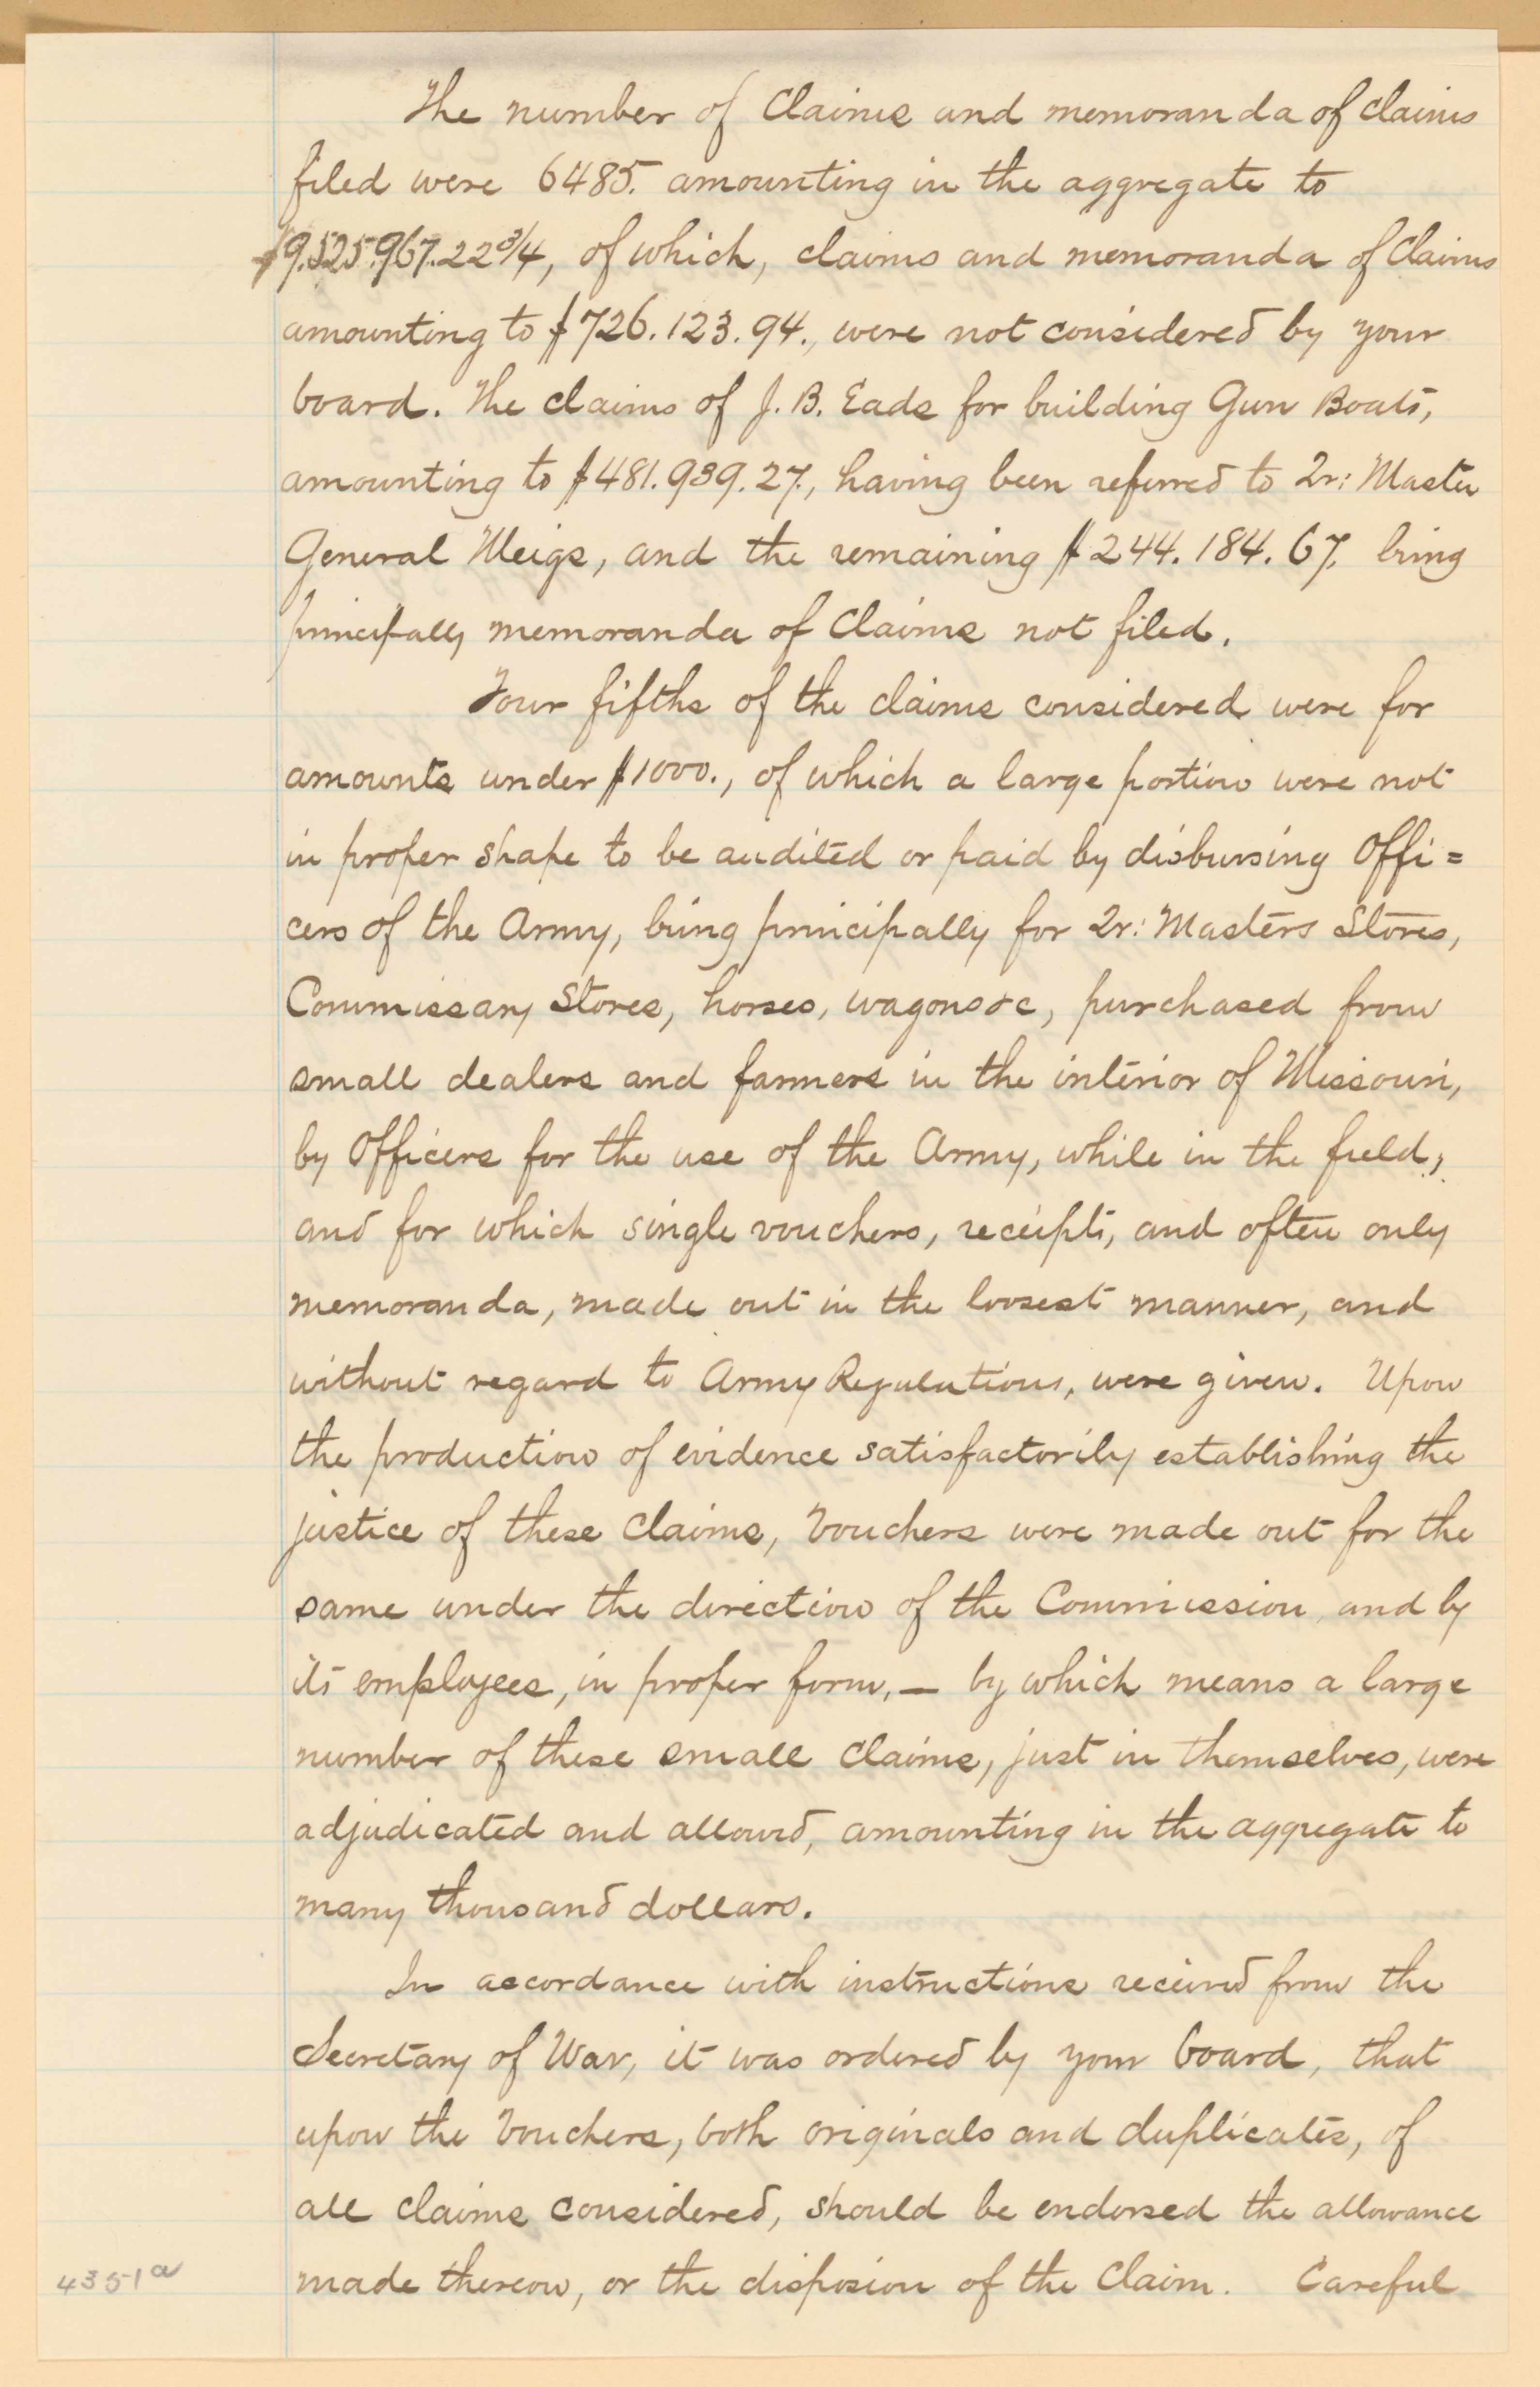 The number of Claims and memoranda of claims
filed were 6485. amounting in the aggregate to
$9.525.967.22 3/4, of which, claims and memoranda of Claims
amounting to $726.123.94., were not considered by your
board. The claims of J. B. Eads for building Gun Boats,
amounting to $481.939.27., having been referred to Qr: Master
General Meigs, and the remaining $244.184.67. being
principally memoranda of Claims not filed.
Four fifths of the claims considered were for
amounts under $1000., of which a large portion were not
in proper shape to be audited or paid by disbursing Offi=
cers of the Army, being principally for Qr: Masters Stores,
Commissary Stores, horses, wagons &c, purchased from
small dealers and farmers in the interior of Missouri,
by Officers for the use of the Army, while in the field,
and for which single vouchers, receipts, and often only
memoranda, made out in the loosest manner, and
without regard to Army Regulations, were given. Upon
the production of evidence satisfactorily establishing the
justice of these Claims, Vouchers were made out for the
same under the direction of the Commission, and by
its employees, in proper form, — by which means a large
number of these small Claims, just in themselves, were
adjudicated and allowed, amounting in the aggregate to
many thousand dollars.
In accordance with instructions received from the
Secretary of War, it was ordered by your board, that
upon the Vouchers, both originals and duplicates, of
all claims considered, should be endorsed the allowance
made thereon, or the disposion of the Claim. Careful
4351a